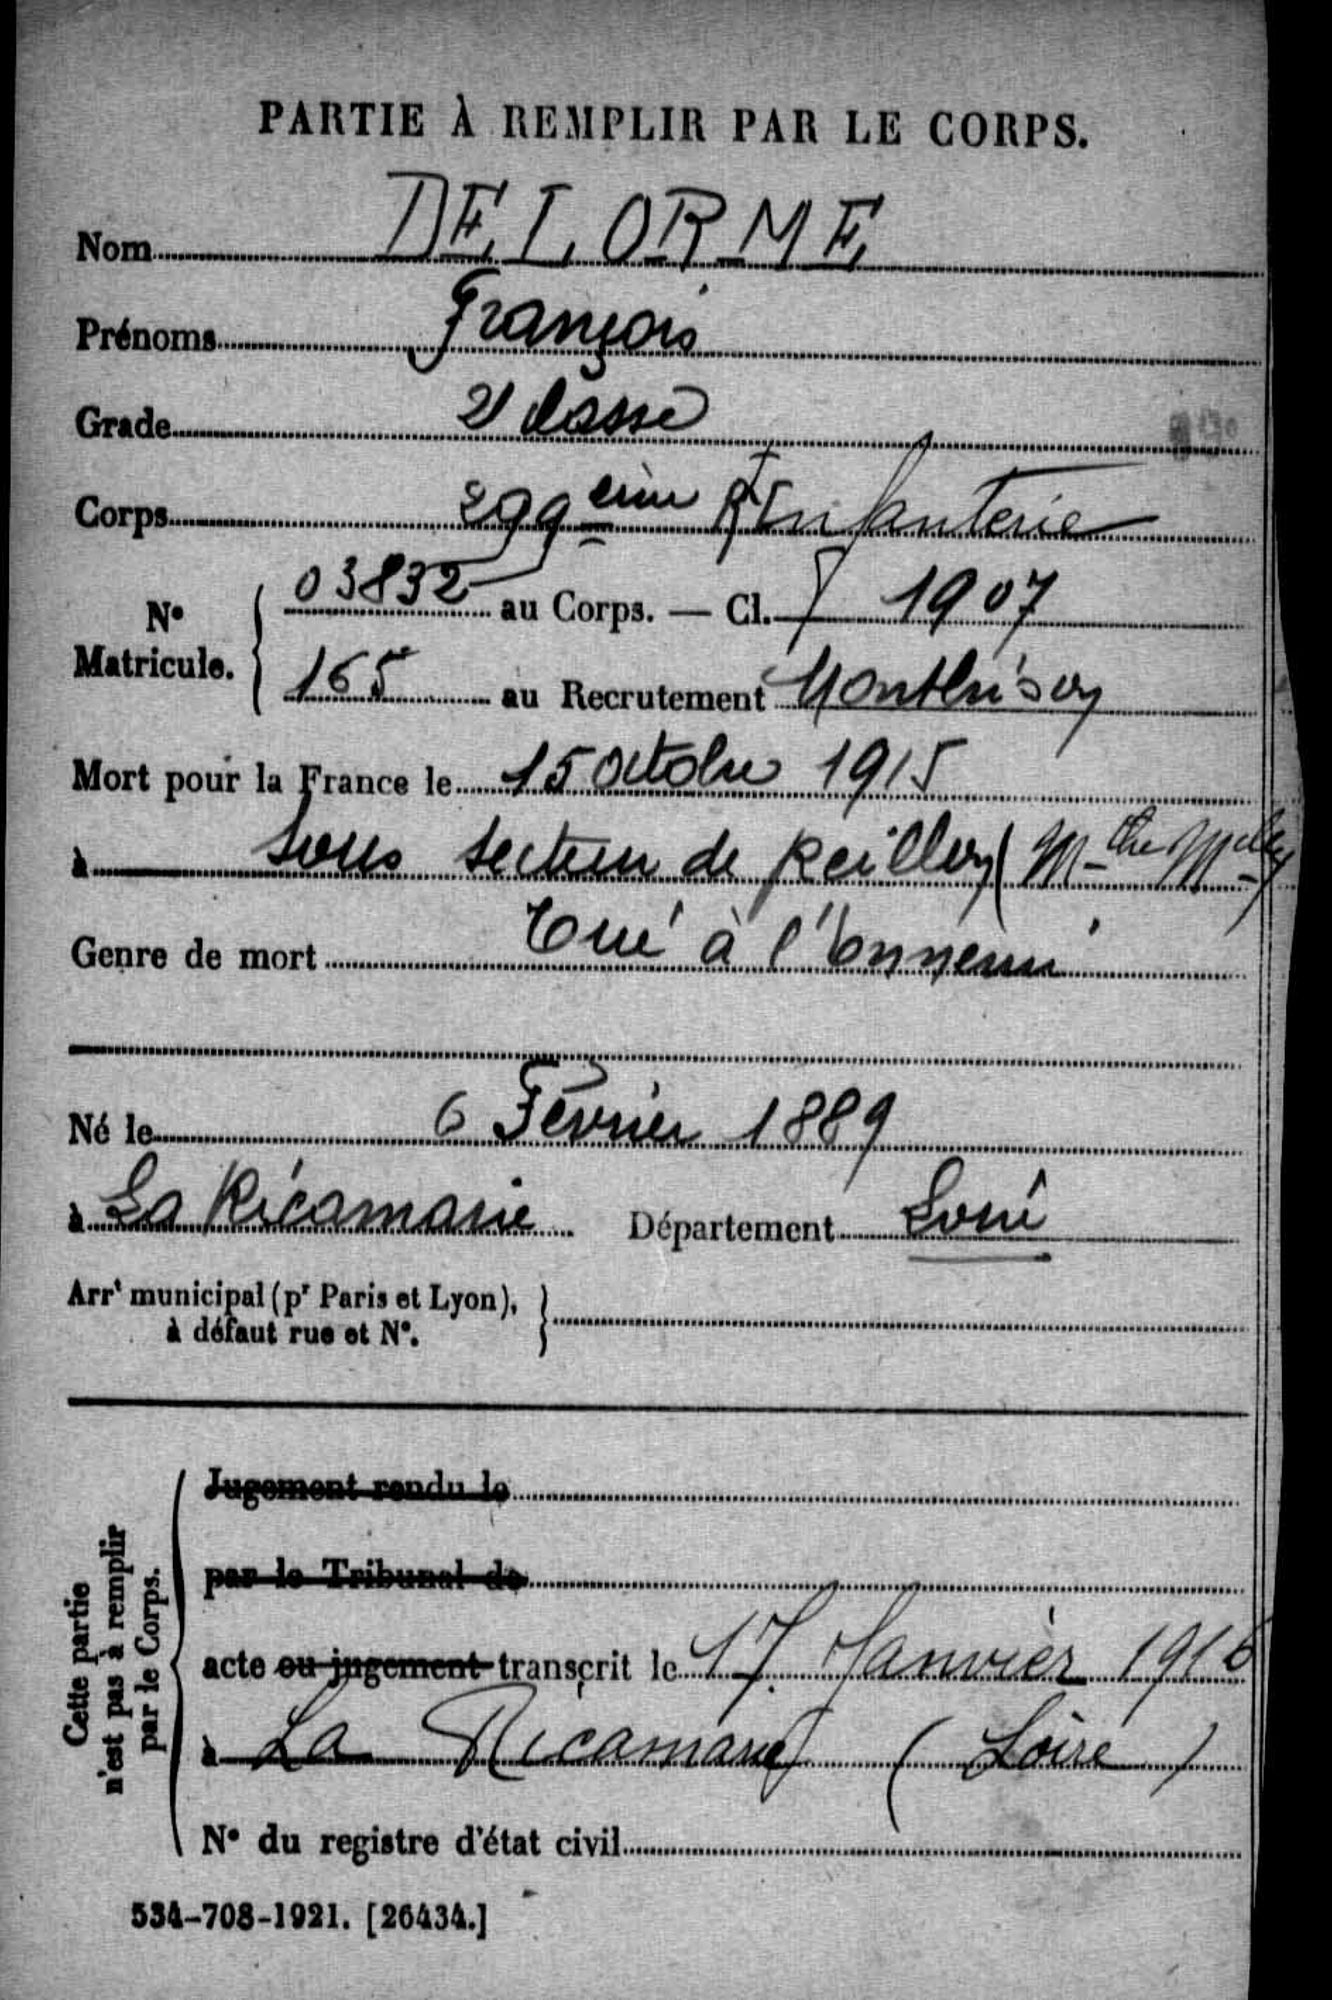 PARTIE À REMPLIR PAR LE CORPS.
Nom DELORME
Prénoms François
Grade 2e classe
Corps 299ème Rt Infanterie
N° Matricule. { 03832 au Corps. — Cl. 1907
165 au Recrutement Montbrison
Mort pour la France le 15 octobre 1915
à sous secteur de Reillon (Mthe Mlle)
Genre de mort Tué à l'ennemi
Né le 6 Février 1889
à La Ricamarie Département Loire
Arrt municipal (pr Paris et Lyon), à défaut rue et N°. }
Cette partie n'est pas à remplir par le Corps.
Jugement rendu le
par le Tribunal de
acte ou jugement transcrit le 17 Janvier 1916
à La Ricamarie (Loire)
N° du registre d'état civil
534-708-1921. [26434.]